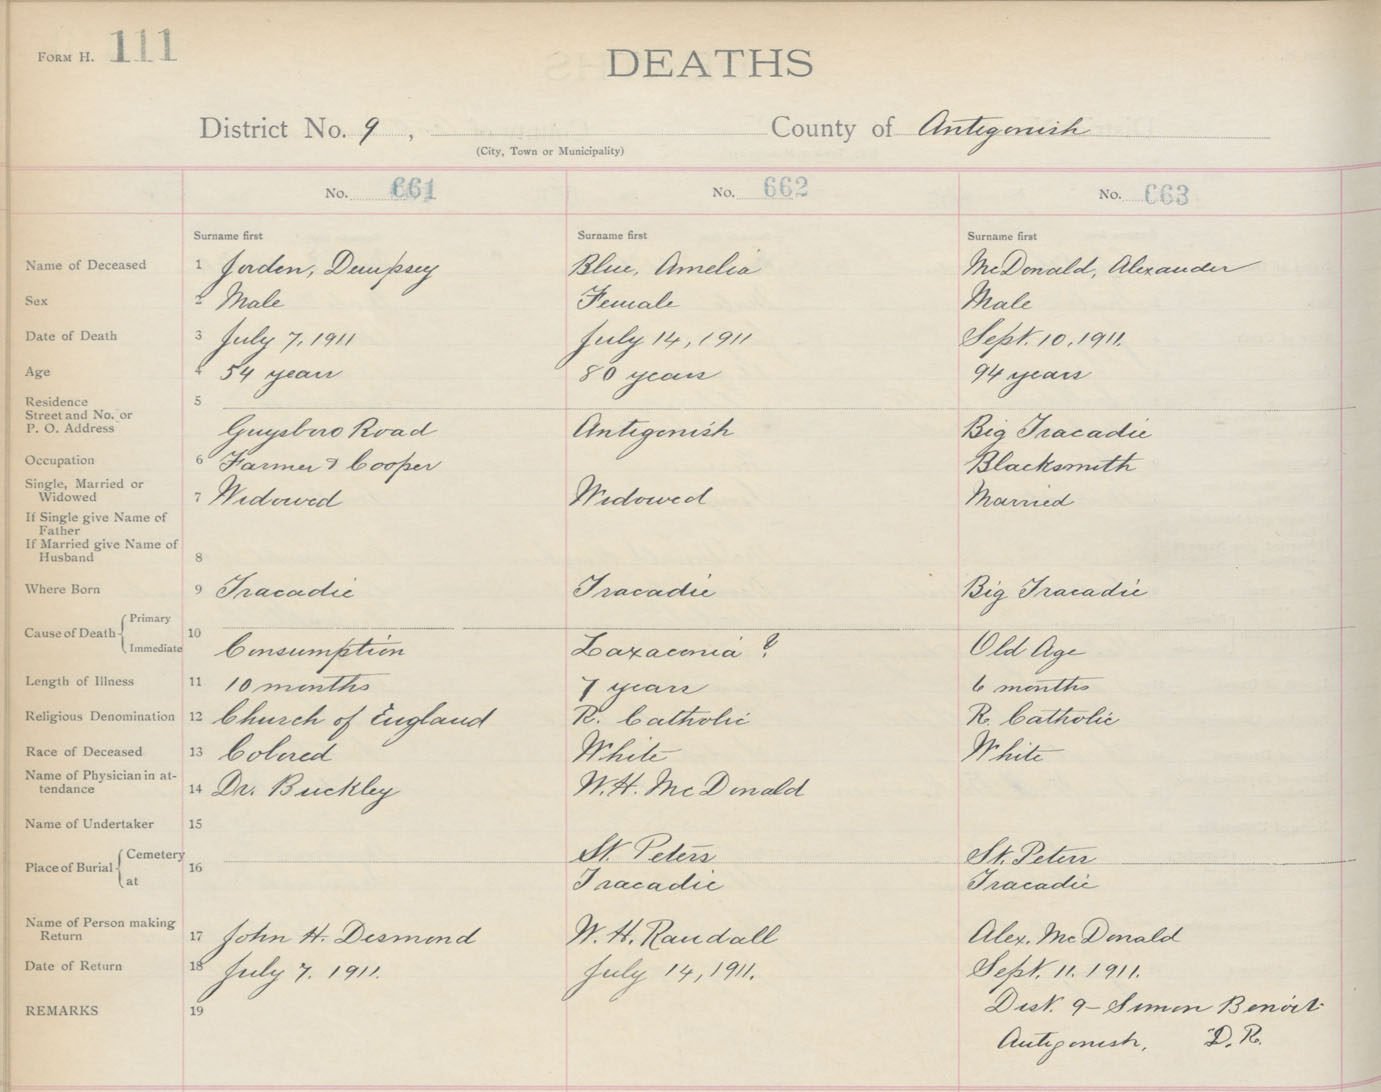 FORM H. 111
DEATHS
District No. 9 , County of Antigonish
(City, Town or Municipality)
No. 661 No. 662 No. 663
Surname first Surname first Surname first
Name of Deceased 1 Jorden, Dempsey Blue, Amelia McDonald, Alexander
Sex 2 Male Female Male
Date of Death 3 July 7, 1911 July 14, 1911 Sept. 10, 1911.
Age 4 54 years 80 years 94 years
Residence 5
Street and No. or
P. O. Address Guysboro Road Antigonish Big Tracadie
Occupation 6 Farmer & Cooper Blacksmith
Single, Married or
Widowed 7 Widowed Widowed Married
If Single give Name of
Father
If Married give Name of
Husband 8
Where Born 9 Tracadie Tracadie Big Tracadie
Cause of Death Primary 10
Immediate Consumption Laxaconia ? Old Age
Length of Illness 11 10 months 7 years 6 months
Religious Denomination 12 Church of England R. Catholic R. Catholic
Race of Deceased 13 Colored White White
Name of Physician in at-
tendance 14 Dr. Buckley W. H. McDonald
Name of Undertaker 15
Place of Burial Cemetery 16 St. Peters St. Peters
at Tracadie Tracadie
Name of Person making
Return 17 John H. Desmond W. H. Randall Alex. McDonald
Date of Return 18 July 7. 1911. July 14, 1911. Sept. 11. 1911.
REMARKS 19 Dist. 9 - Simon Benoit
Antigonish, D. R.